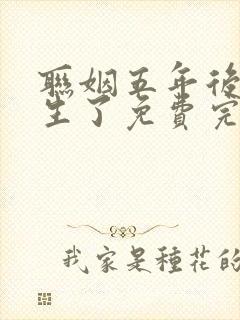 聯姻五年後
生了免費完
我家是種花的